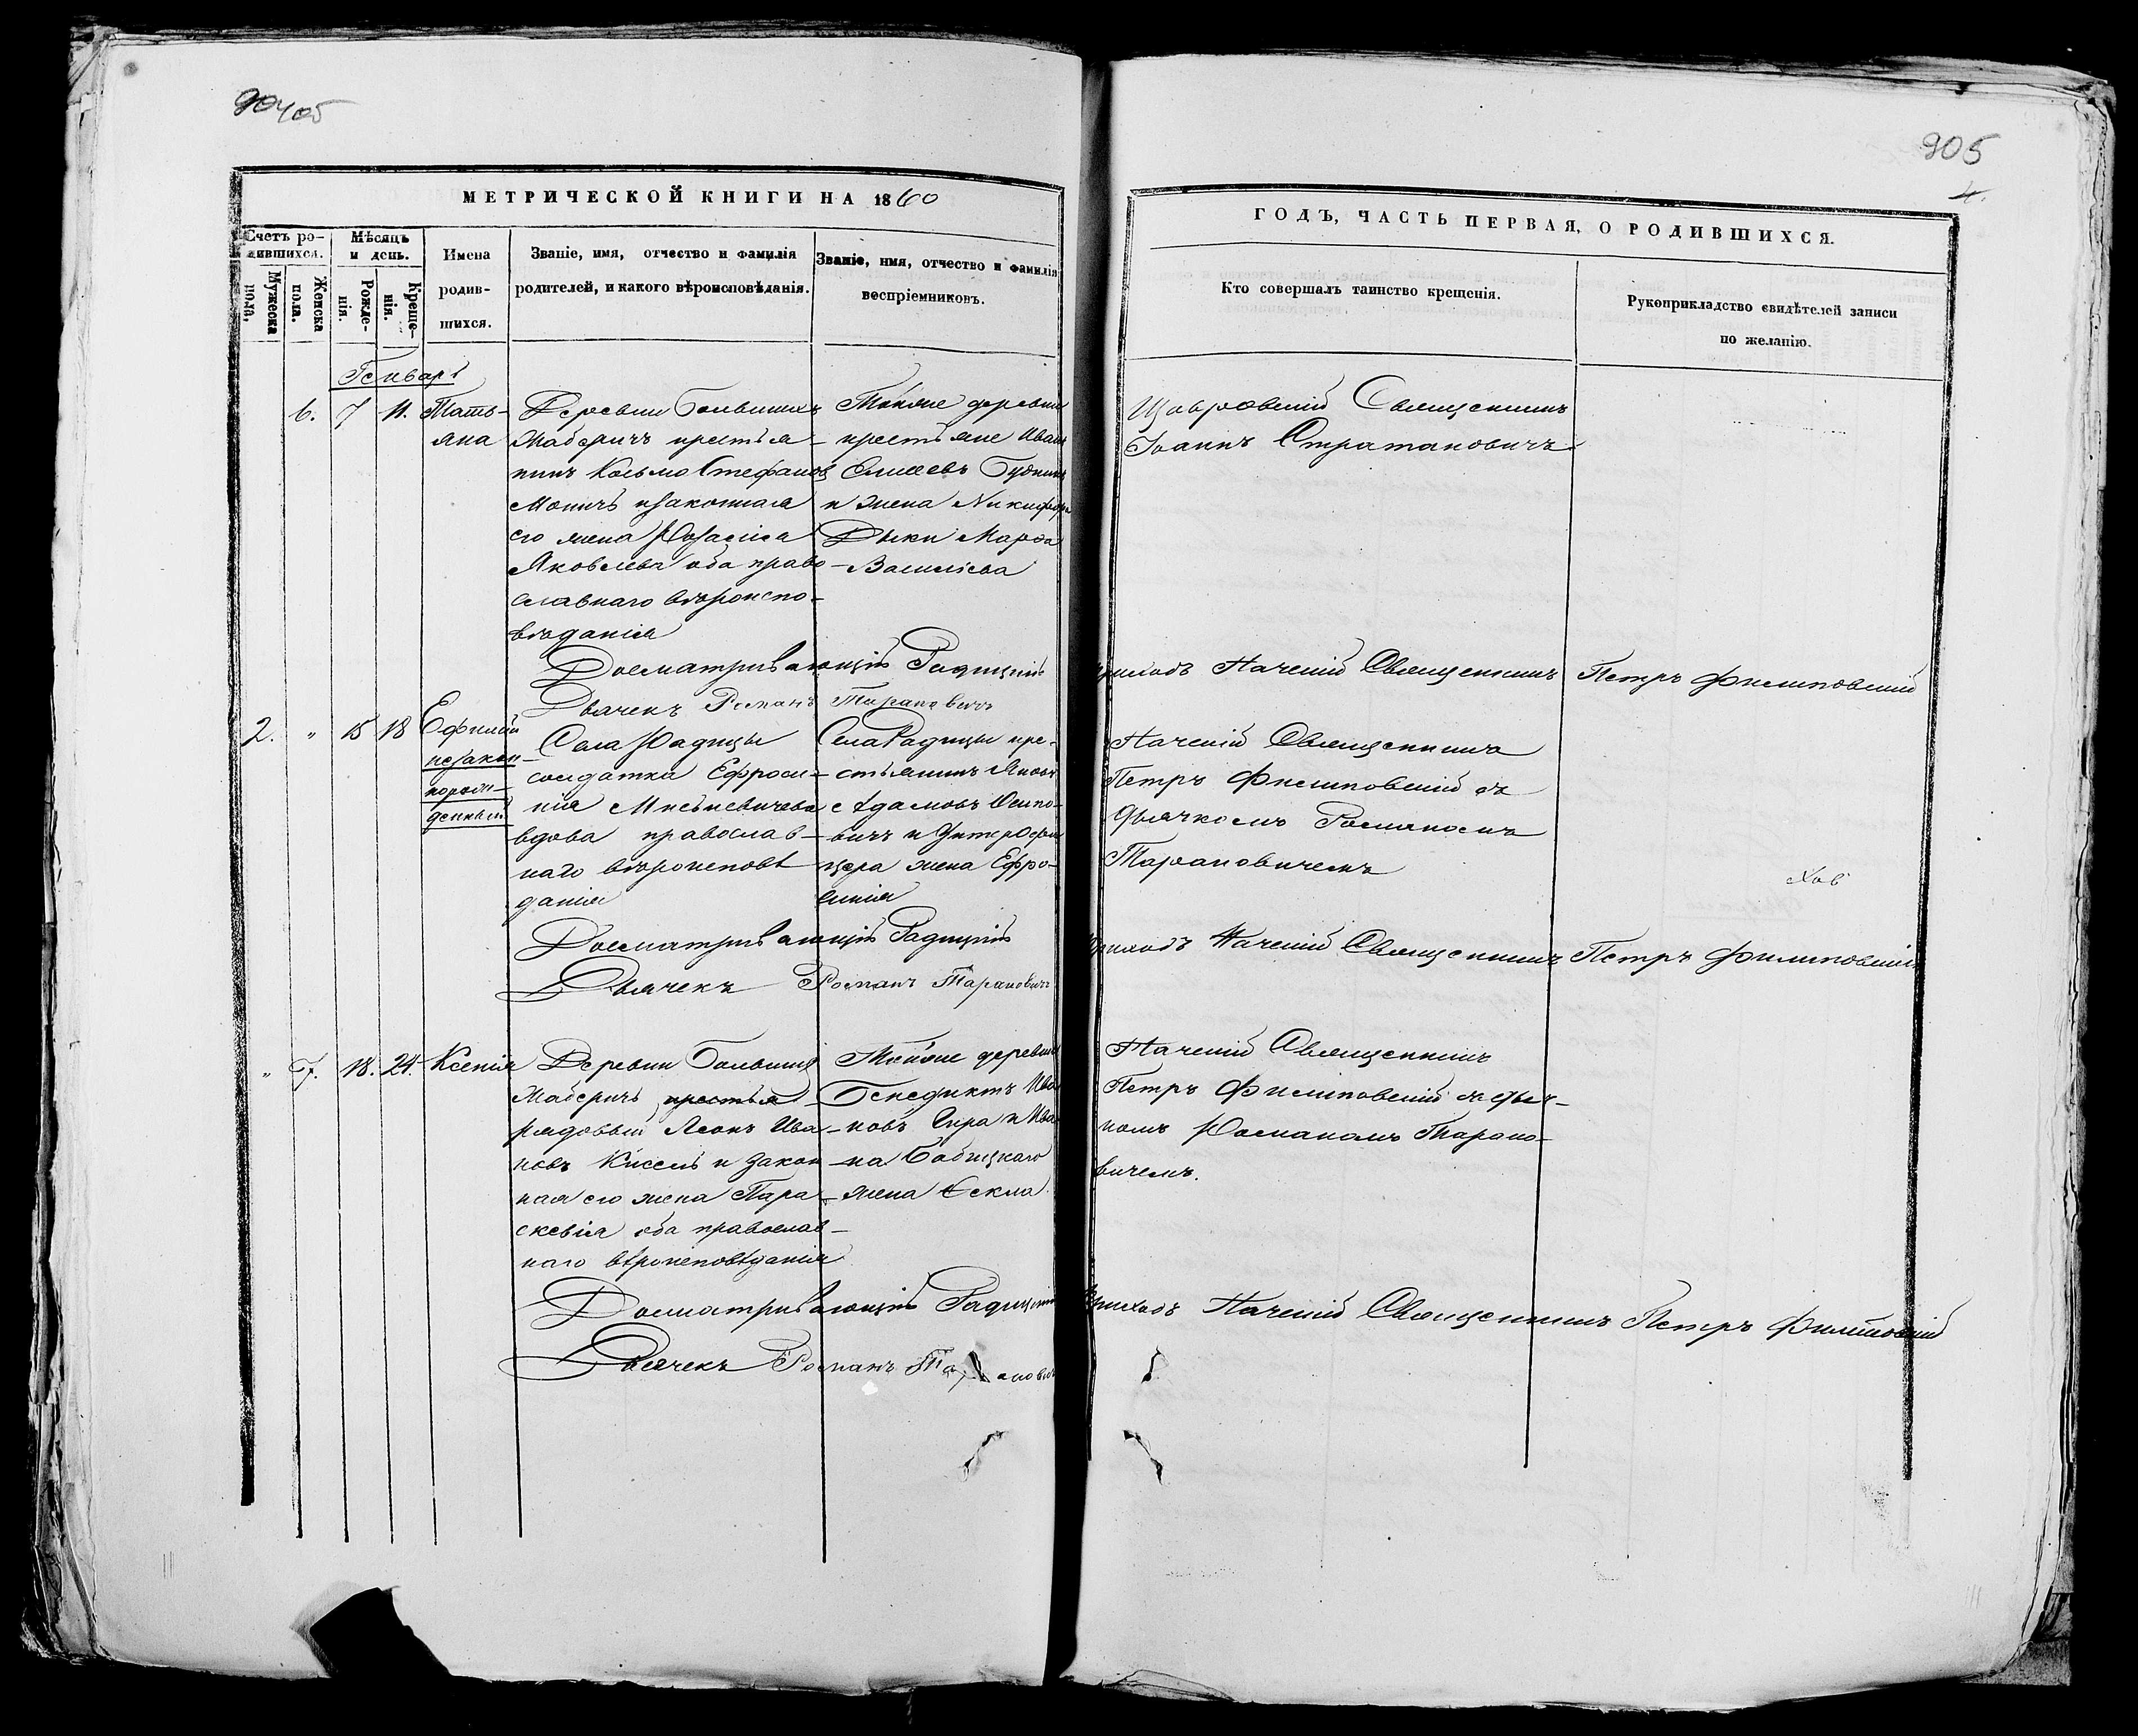 90405
905
4.
МЕТРИЧЕСКОЙ КНИГИ НА 1860
ГОДЪ, ЧАСТЬ ПЕРВАЯ, О РОДИВШИХСЯ.
Счетъ ро-
дившихся.
Мужеска
пола.
Женска
пола.
Мѣсяцъ
и день.
Рожде-
нія.
Креще-
нія.
Имена
родив-
шихся.
Званіе, имя, отчество и фамилія
родителей, и какого вѣроисповѣданія.
Званіе, имя, отчество и фамилія
воспріемниковъ.
Кто совершалъ таинство крещенія.
Рукоприкладство свидѣтелей записи
по желанію.
Генварь
6. 7 11.
Тать-
яна
Деревни Большихъ
Мабѣричъ крестья-
нинъ Косьма Стефановъ
его жена
Яковлева оба право-
славнаго вѣроиспо-
вѣданія
Тойже деревни
крестьяне Иванъ
Елисеевъ
и жена Никифора
Дыки Марѳа
Василіева
Священникъ
Іоаннъ Стратановичъ
Досматривающій Радицкій приходъ Начскій Священникъ Петръ Филиповскій
Дьячекъ Романъ Тарановичъ
2. " 15 18
Ефимій
незакон-
норож-
денный
Села Радицы
солдатка Ефроси-
нія
вдова православ-
наго вѣроисповѣ
данія
Села Радицы кре-
стьянинъ Яковъ
Адамовъ Осипо-
вичъ и Унтерофи
цера жена Ефро-
синія
Начскій Священникъ
Петръ Филиповскій съ
дьячкомъ Романомъ
Тарановичемъ
Досматривающій Радицкій приходъ Начскій Священникъ Петръ Филиповскій
Дьячекъ Романъ Тарановичъ
" 7. 18. 24.
Ксенія
Деревни Большихъ
Мабѣричъ крестья
рядовый Леонъ Ива-
новъ Кисель и закон
ная его жена Пара-
скевія оба православ-
наго вѣроисповѣданія
Тойже деревни
Бенедиктъ Ива
новъ и Ива
на Бобицкаго
жена Ѳекла
Начскій Священникъ
Петръ Филиповскій съ дьяч-
комъ Романомъ Тарано-
вичемъ.
Досматривающій Радицкій приходъ Начскій Священникъ Петръ Филиповскій
Дьячекъ Романъ Тарановичъ